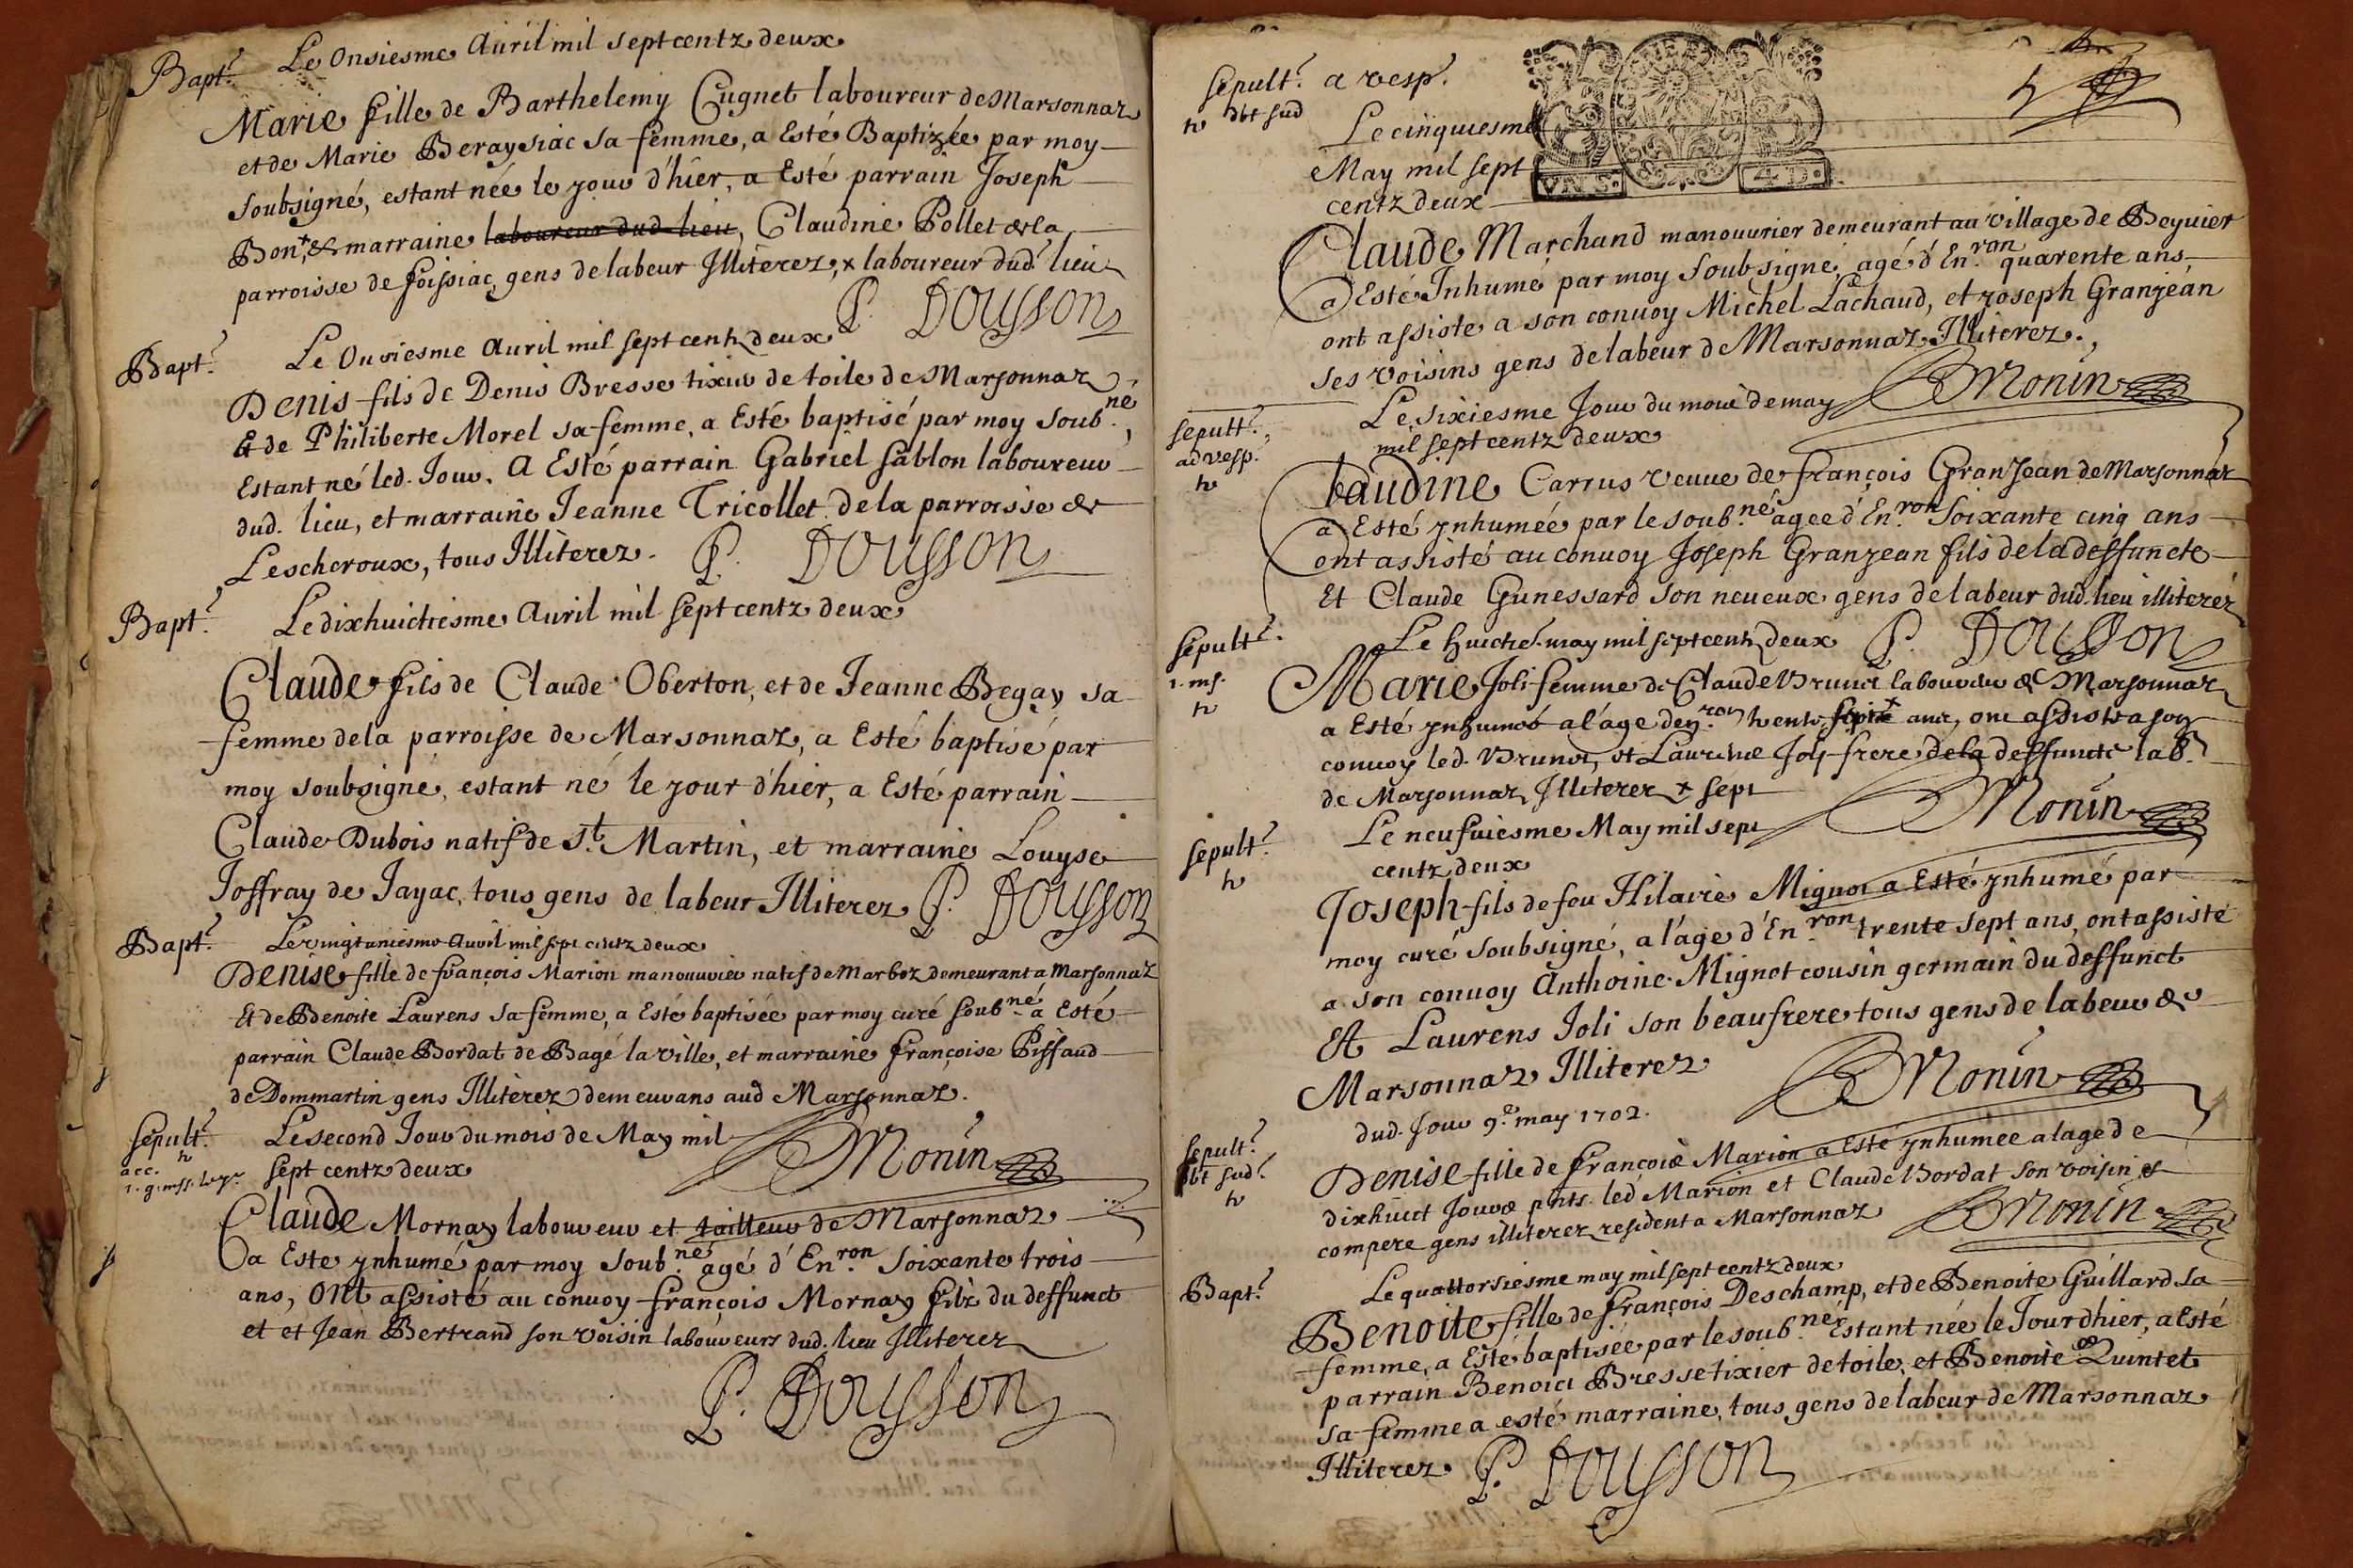 Bapt.e Le Onsiesme Auril mil sept centz deux
Marie fille de Barthelemy Cugnet laboureur de Marsonnaz
et de Marie Beraysiac sa femme, a Esté Baptizée par moy
soubsigné, estant née le jour d'hier, a Esté parrain Joseph
Bon+, & marraine laboureur dud lieu, Claudine Pollet de la
parroisse de foissiac, gens de labeur Illiterez, x laboureur dud. lieu
P. Douisson
Bapt.e Le Onsiesme Auril mil sept centz deux
Denis fils de Denis Bresse tixier de toile de Marsonnaz
& de Philiberte Morel sa femme, a Esté baptisé par moy soub.né,
Estant né led. Jour. A Esté parrain Gabriel Sablon laboureur
dud. lieu, et marraine Jeanne Tricollet de la parroisse de
Lescheroux, tous Illiterez. P. Douisson
Bapt.e Le dixhuictiesme Auril mil sept centz deux
Claude fils de Claude Oberton, et de Jeanne Begay sa
femme de la parroisse de Marsonnaz, a Esté baptisé par
moy soubsigné, estant né le jour d'hier, a Esté parrain
Claude Dubois natif de St. Martin, et marraine Louyse
Joffray de Jayac, tous gens de labeur Illiterez P. Douisson
Bapt.e Le vingtuniesme Auril mil sept centz deux
Denise fille de françois Marion manouurier natif de Marboz demeurant a Marsonnaz
Et de Benoite Laurens sa femme, a Esté baptisée par moy curé soub.né a Esté
parrain Claude Bordat de Bagé la ville, et marraine françoise Piffaud
de Dommartin gens Illiterez demeurans aud Marsonnaz.
Sepult.e Le second Jour du mois de May mil
acc. sept centz deux Monin
Claude Mornay laboureur et tailleur de Marsonnaz
a Este ynhumé par moy soub.né agé d'En.ron soixante trois
ans, ont assisté au conuoy françois Mornay filz du deffunct
et et Jean Bertrand son voisin laboureurs dud. lieu Illiterez
P. Douisson
Sepult.e a vesp.
Le cinquiesme
May mil sept
centz deux
VN S. 4 D.
Claude Marchand manouurier demeurant au village de Beyuier
a Esté Inhumé par moy soubsigné, agé d'En.ron quarente ans,
ont assiste a son conuoy Michel Lachaud, et joseph Granjean
ses voisins gens de labeur de Marsonnaz Illiterez.,
Monin
Sepult.e, Le sixiesme Jour du mois de may
ad vesp. mil sept centz deux
Claudine Carrus veuue de françois GranJean de Marsonnaz
a Esté ynhumée par le soub.né agee d'En.ron soixante cinq ans
ont assisté au conuoy Joseph Granjean fils de la deffuncte
Et Claude Gunessard son neueux gens de labeur dud. lieu illiterez
Sepult.e Le huictie. may mil sept centz deux P. Douisson
Marie Joli femme de Claude Brunet laboureur de Marsonnaz
a Esté ynhumée a l'age d'en.ron trente ans, ont assisté a son
conuoy led. Brunet, et Laurens Joly frere de la deffuncte lab.
de Marsonnaz Illiterez x sept
Monin
Sepult.e Le neufuiesme May mil sept
centz deux
Joseph fils de feu Hilaire Mignot a Esté ynhumé par
moy curé soubsigné, a l'age d'En.ron trente sept ans, ont assisté
a son conuoy Anthoine Mignot cousin germain du deffunct
Et Laurens Joli son beaufrere tous gens de labeur de
Marsonnaz Illiterez Monin
Sepult.e dud. Jour 9.e may 1702.
Denise fille de françois Marion a Esté ynhumée a l'age de
dixhuict Jours pnts. led Marion et Claude Bordat son voisin et
compere gens illiterez resident a Marsonnaz Monin
Bapt.e Le quattorsiesme may mil sept centz deux
Benoite fille de françois Deschamp, et de Benoite Guillard sa
femme, a Esté baptisée par le soub.né, Estant née le Jour d'hier, a Esté
parrain Benoict Bresse tixier de toile, et Benoite Quintet
sa femme a esté marraine, tous gens de labeur de Marsonnaz
Illiterez P. Douisson